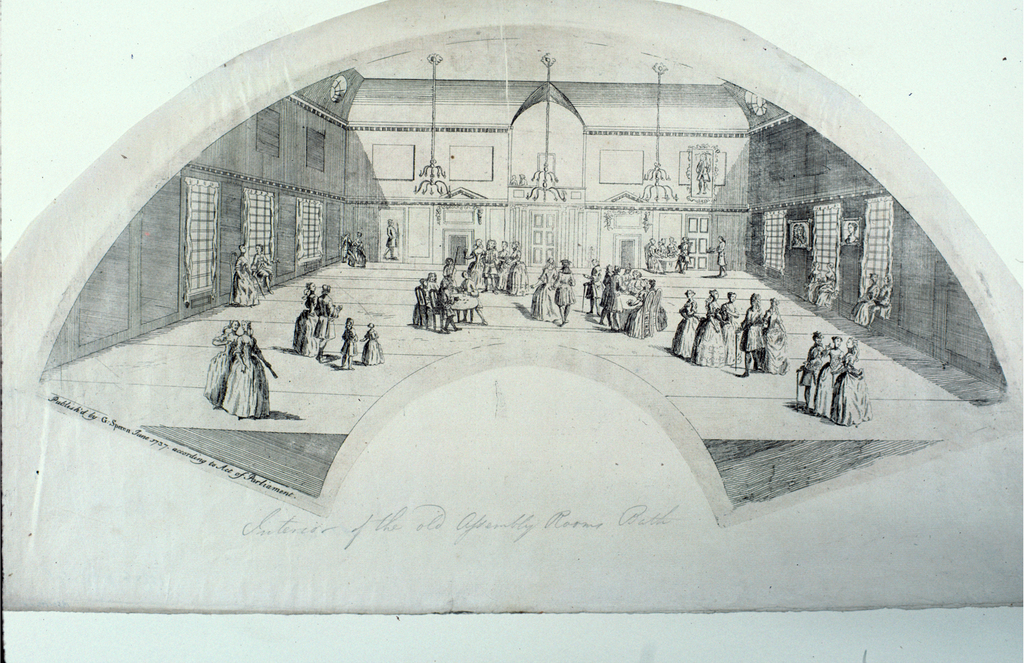 Publish'd by G. Speren June 1737. according to Act of Parliament.
Interior of the old Assembly Rooms Bath